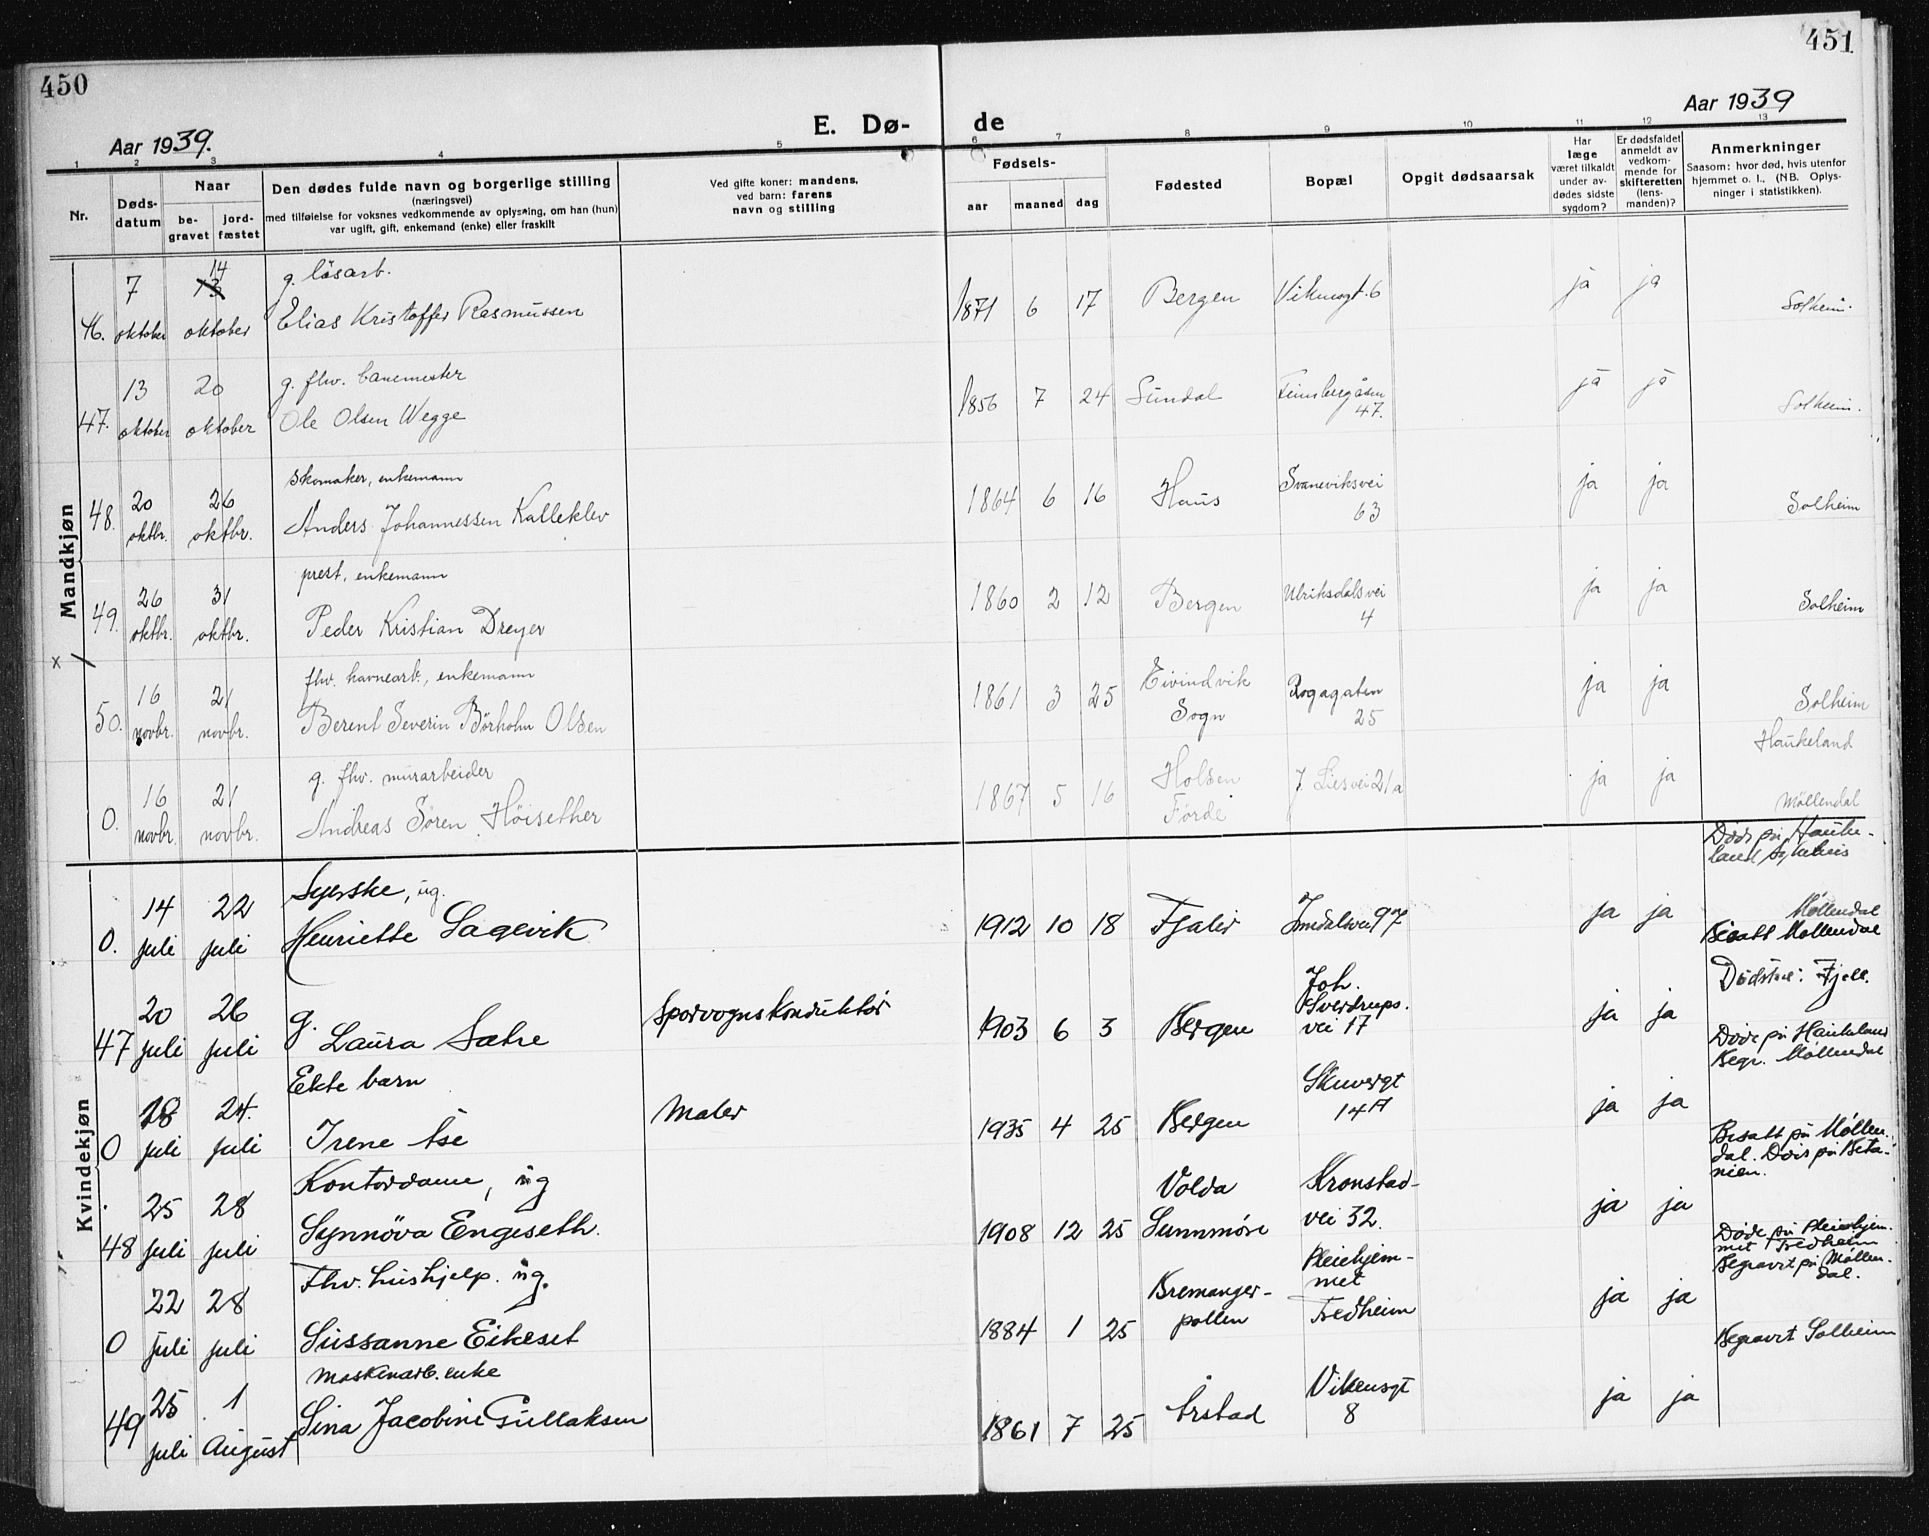 450
451
Aar 1939.
E. Dø-
de
Aar 1939
1 2 3 4 5 6 7 8 9 10 11 12 13
Nr.
Døds-
datum
Naar
be-
gravet
jord-
fæstet
Den dødes fulde navn og borgerlige stilling
(næringsvei)
med tilføielse for voksnes vedkommende av oplysning, om han (hun)
var ugift, gift, enkemand (enke) eller fraskilt
Ved gifte koner: mandens,
ved barn: farens
navn og stilling
Fødsels-
aar
maaned
dag
Fødested
Bopæl
Opgit dødsaarsak
Har
læge
været tilkaldt
under av-
dødes sidste
sygdom?
Er dødsfaldet
anmeldt av
vedkom-
mende for
skifteretten
(lens-
manden)?
Anmerkninger
Saasom: hvor død, hvis utenfor
hjemmet o. l., (NB. Oplys-
ninger i statistikken).
Mandkjøn
7 13 14 g. løsarb.
46. oktober oktober Elias Kristoffer Rasmussen 1871 6 17 Bergen Vikensgt. 6 ja ja Solheim.
13 20 g. fhv. banemester
47. oktober oktober Ole Olsen Wegge 1856 7 24 Sundal 47. ja ja Solheim.
20 26 skomaker, enkemann
48. oktbr. oktbr. Anders Johannessen Kalleklev 1864 6 16 Haus Svaneviksvei
63 ja ja Solheim
26 31 prest, enkemann
49. oktbr. oktbr. Peder Kristian Dreyer 1860 2 12 Bergen Ulriksdalsvei
4 ja ja Solheim
x /
16 21 fhv. havnearb., enkemann
50. novbr. novbr. Berent Severin Børholm Olsen 1861 3 25 Eivindvik
Sogn Rogagaten
25 ja ja Solheim
Haukeland
16 21 g. fhv. murarbeider
0. novbr. novbr. Andreas Søren Høisether 1867 5 16 Holsen
Førde J. Liesvei 21a ja ja Møllendal
Kvindekjøn
Døde på Hauke-
land Sykehus
14 22 Syerske, ug.
0. juli juli Henriette Sagevik 1912 10 18 Fjaler 97 ja ja Møllendal
Bisatt Møllendal
Dødsted: Fjell.
20 26 g.
47 juli juli Laura Sætre Sporvognskonduktør 1903 6 3 Bergen Joh.
Sverdrups.
vei 17 ja ja Døde på Haukeland
Begr. Møllendal
18 24. Ekte barn
0 juli juli Irene Åse Maler 1935 4 25 Bergen Skuvergt
14 A ja ja Bisatt på Møllen-
dal. Døds på Beta-
nien.
25 28 Kontordame, ug
48 juli juli Synnøva Engeseth. 1908 12 25 Volda
Sunnmøre Kronstad-
vei 32. ja ja
22 28 Fhv. hushjelp. ug.
0 juli juli Sussanne Eikeset 1884 1 25 Bremanger-
pollen Pleiehjem-
met
Fredheim ja ja Døde på Pleiehjem-
met Fredheim
Begravet på Møllen-
dal.
25 1 Maskinarb. enke
49 juli August Sina Jacobine Gullaksen 1861 7 25 Årstad Vikensgt
8 ja ja Begravet Solheim